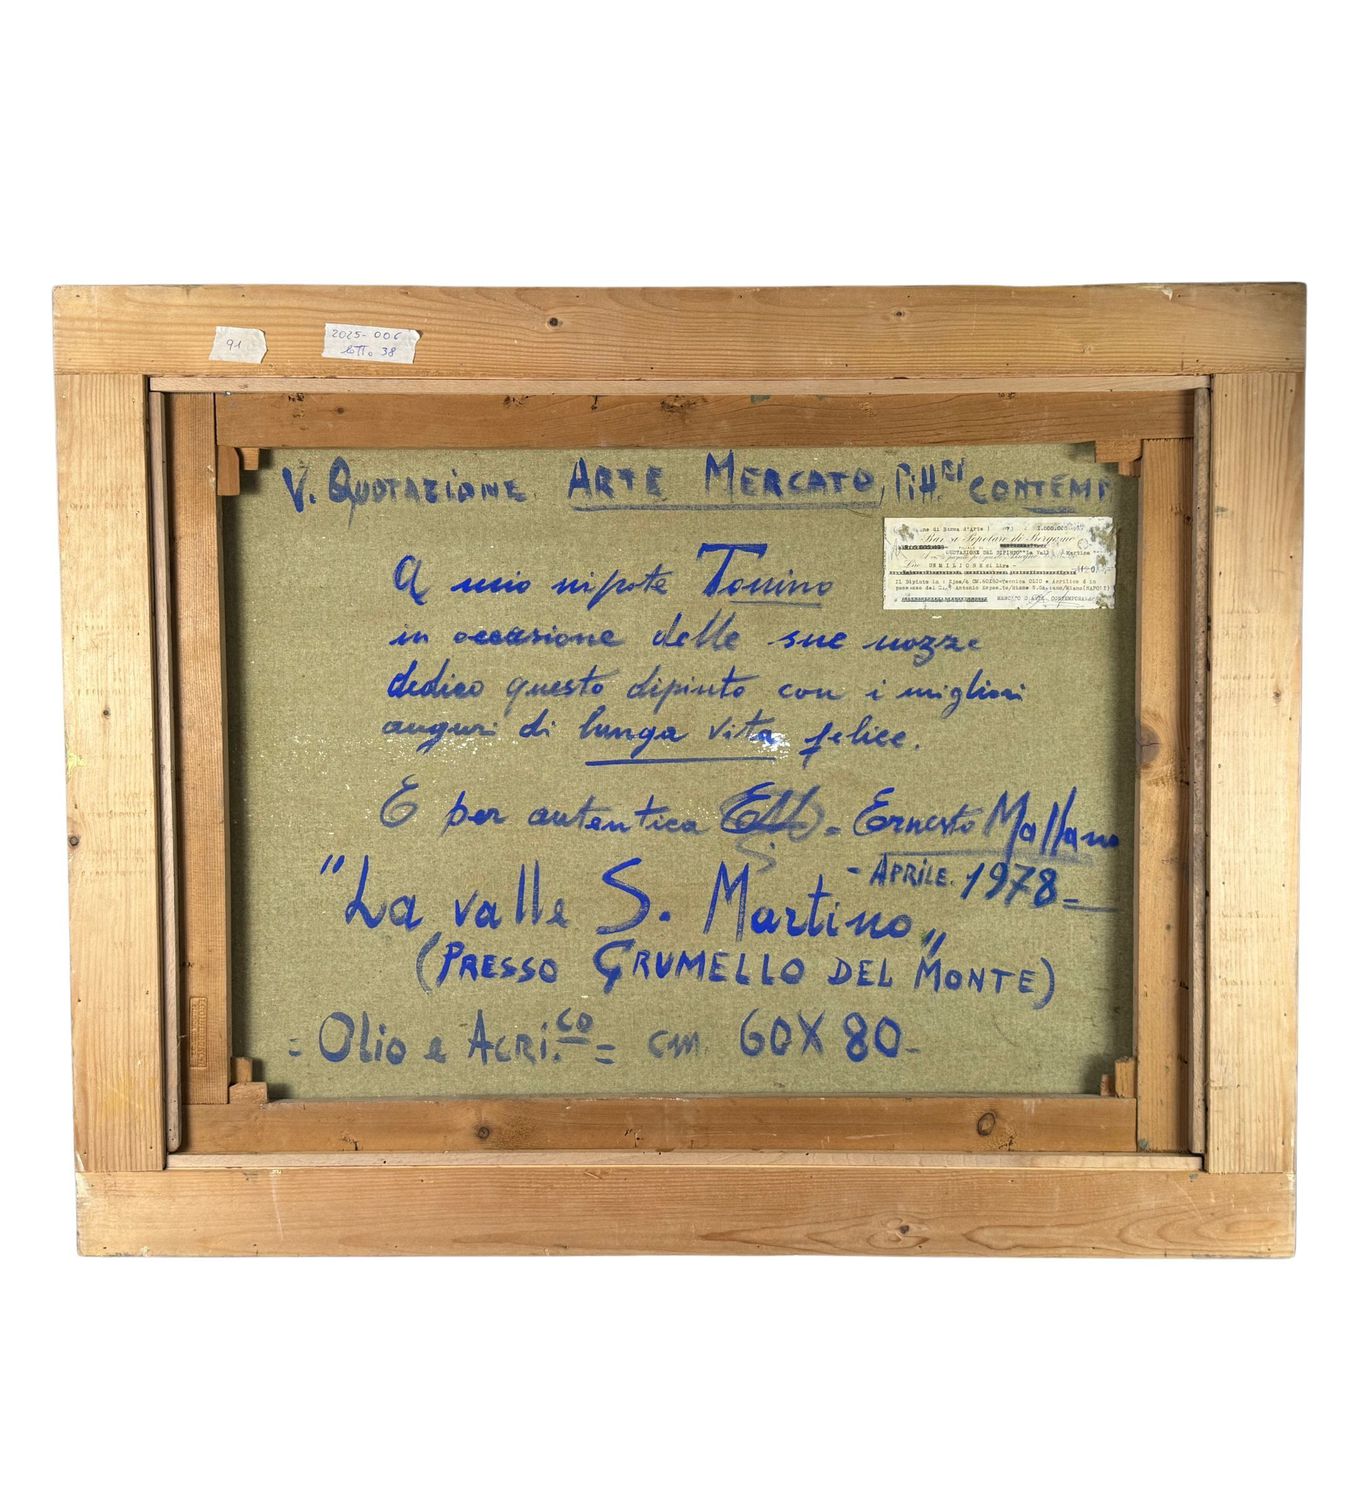 91
2025-006
lotto 38
V. QUOTAZIONE ARTE MERCATO, Pitt.ri CONTEMP
1.000.000
Banca Popolare di Bergamo
QUOTAZIONE DEL DIPINTO "La Valle S. Martino"
UN MILIONE di Lire
Il Dipinto in CM.60X80=Tecnica OLIO e Acrilico è in
possesso del Antonio
MERCATO D'ARTE CONTEMPORANEA
A mio nipote Tonino
in occasione delle sue nozze
dedico questo dipinto con i migliori
auguri di lunga vita felice.
E per autentica = Ernesto Mallano
- APRILE. 1978 =
"La valle S. Martino"
(PRESSO GRUMELLO DEL MONTE)
= Olio e ACRI.CO = cm. 60X80-